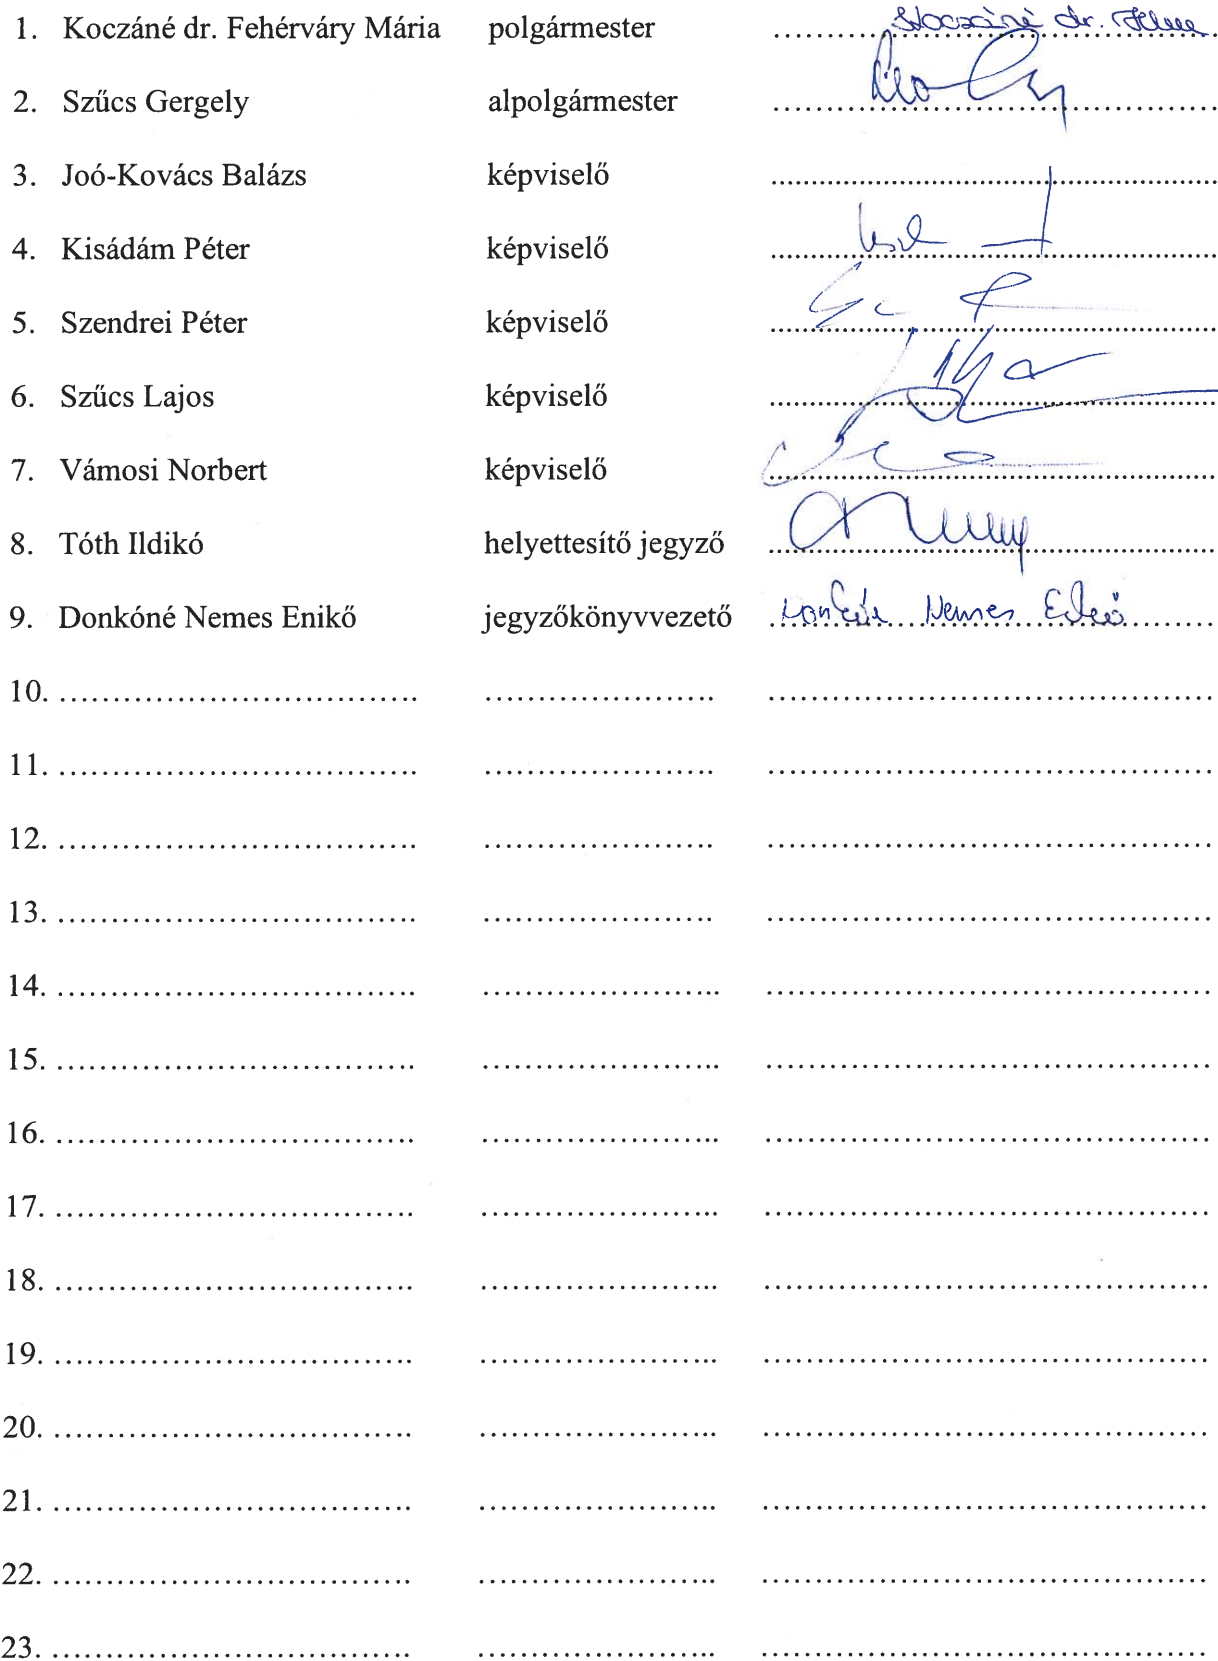 1. Koczáné dr. Fehérváry Mária polgármester .......... Koczáné dr.
2. Szűcs Gergely alpolgármester ..........
3. Joó-Kovács Balázs képviselő ..........
4. Kisádám Péter képviselő ..........
5. Szendrei Péter képviselő ..........
6. Szűcs Lajos képviselő ..........
7. Vámosi Norbert képviselő ..........
8. Tóth Ildikó helyettesítő jegyző ..........
9. Donkóné Nemes Enikő jegyzőkönyvvezető Donkóné Nemes Enikő
10. .......... .......... ..........
11. .......... .......... ..........
12. .......... .......... ..........
13. .......... .......... ..........
14. .......... .......... ..........
15. .......... .......... ..........
16. .......... .......... ..........
17. .......... .......... ..........
18. .......... .......... ..........
19. .......... .......... ..........
20. .......... .......... ..........
21. .......... .......... ..........
22. .......... .......... ..........
23. .......... .......... ..........